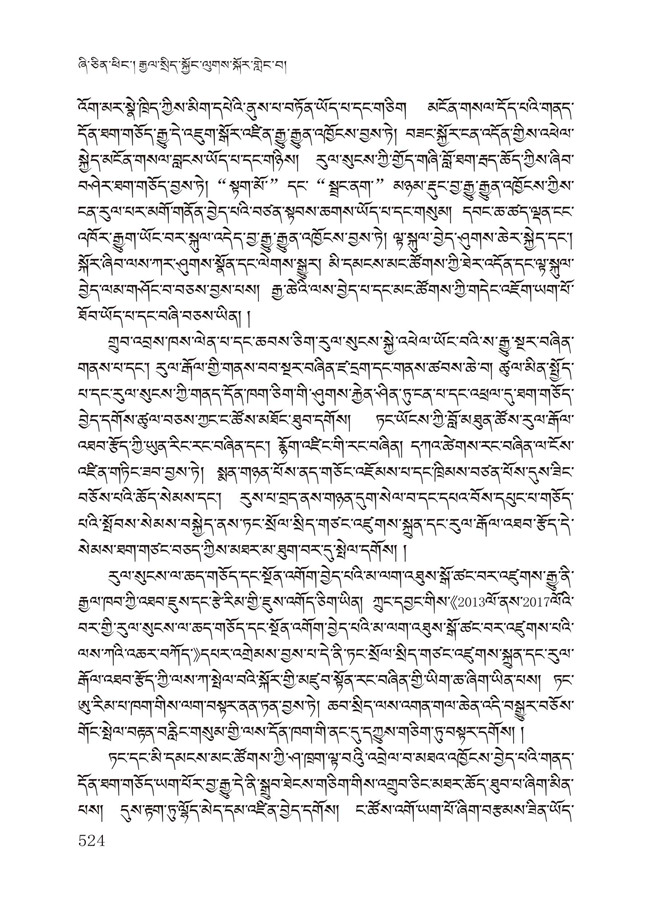 ཞི་ཅིན་ཕིང་། རྒྱལ་སྲིད་སྐྱོང་ལུགས་སྐོར་གླེང་བ།
འོག་མར་སྣེ་ཁྲིད་ཀྱིས་མིག་དཔེའི་ནུས་པ་བཏོན་ཡོད་པ་དང་གཅིག མངོན་གསལ་དོད་པའི་གནད་
དོན་ཐག་གཅོད་རྒྱུ་དེ་འཇུག་སྒོར་འཛིན་རྒྱུ་རྒྱུན་འཁྱོངས་བྱས་ཏེ། བཟང་སྐྱོར་ངན་འདོན་གྱིས་འཕེལ་
སྐྱེད་མངོན་གསལ་བླངས་ཡོད་པ་དང་གཉིས། རུལ་སུངས་ཀྱི་གྱོད་གཞི་བློ་ཐག་རྦད་ཆོད་ཀྱིས་ཞིབ་
བཤེར་ཐག་གཅོད་བྱས་ཏེ། “སྟག་མོ” དང་ “སྦྲང་ནག” མཉམ་རྡུང་བྱ་རྒྱུ་རྒྱུན་འཁྱོངས་ཀྱིས་
ངན་རུལ་པར་མགོ་གནོན་བྱེད་པའི་བཙན་སྟབས་ཆགས་ཡོད་པ་དང་གསུམ། དབང་ཆ་ཚད་ལྡན་ངང་
འཁོར་རྒྱུག་ཡོང་བར་སྐུལ་འདེད་བྱ་རྒྱུ་རྒྱུན་འཁྱོངས་བྱས་ཏེ། ལྟ་སྐུལ་བྱེད་ཤུགས་ཆེར་སྐྱེད་དང་།
སྐོར་ཞིབ་ལས་ཀར་ཤུགས་སྣོན་དང་ལེགས་སྒྱུར། མི་དམངས་མང་ཚོགས་ཀྱི་ཟེར་འདོན་དང་ལྟ་སྐུལ་
བྱེད་ལམ་གཤོང་བ་བཅས་བྱས་པས། རྒྱ་ཆེའི་ལས་བྱེད་པ་དང་མང་ཚོགས་ཀྱི་གདེང་འཇོག་ཡག་པོ་
ཐོབ་ཡོད་པ་དང་བཞི་བཅས་ཡིན། །
གྲུབ་འབྲས་ཁས་ལེན་པ་དང་ཆབས་ཅིག་རུལ་སུངས་སྐྱེ་འཕེལ་ཡོང་བའི་ས་རྒྱུ་སྔར་བཞིན་
གནས་པ་དང་། རུལ་རྒོལ་གྱི་གནས་བབ་སྔར་བཞིན་ཛ་དྲག་དང་གནས་ཚབས་ཆེ་བ། ཚུལ་མིན་སྤྱོད་
པ་དང་རུལ་སུངས་ཀྱི་གནད་དོན་ཁག་ཅིག་གི་ཤུགས་རྐྱེན་ཤིན་ཏུ་ངན་པ་དང་འཕྲལ་དུ་ཐག་གཅོད་
བྱེད་དགོས་ཚུལ་བཅས་ཀྱང་ང་ཚོས་མཐོང་ཐུབ་དགོས། ཏང་ཡོངས་ཀྱི་བློ་མཐུན་ཚོས་རུལ་རྒོལ་
འཐབ་རྩོད་ཀྱི་ཡུན་རིང་རང་བཞིན་དང་། རྙོག་འཛིང་གི་རང་བཞིན། དཀའ་ཚེགས་རང་བཞིན་ལ་ངོས་
འཛིན་གཏིང་ཟབ་བྱས་ཏེ། སྨན་གཉན་པོས་ནད་གཅོང་འཇོམས་པ་དང་ཁྲིམས་བཙན་པོས་དུས་ཟིང་
བཅོས་པའི་ཆོད་སེམས་དང་། རུས་པ་བྲད་ནས་གཉན་དུག་སེལ་བ་དང་དཔའ་བོས་དཔུང་པ་གཅོད་
པའི་སྤོབས་སེམས་བསྐྱེད་ནས་ཏང་སྲོལ་སྲིད་གཙང་འཛུགས་སྐྲུན་དང་རུལ་རྒོལ་འཐབ་རྩོད་དེ་
སེམས་ཐག་གཙང་བཅད་ཀྱིས་མཐར་མ་ཐུག་བར་དུ་སྤེལ་དགོས། །
རུལ་སུངས་ལ་ཆད་གཅོད་དང་སྔོན་འགོག་བྱེད་པའི་མ་ལག་འཐུས་སྒོ་ཚང་བར་འཛུགས་རྒྱུ་ནི་
རྒྱལ་ཁབ་ཀྱི་འཐབ་ཇུས་དང་རྩེ་རིམ་གྱི་ཇུས་འགོད་ཅིག་ཡིན། ཀྲུང་དབྱང་གིས་《2013ལོ་ནས་2017ལོའི་
བར་གྱི་རུལ་སུངས་ལ་ཆད་གཅོད་དང་སྔོན་འགོག་བྱེད་པའི་མ་ལག་འཐུས་སྒོ་ཚང་བར་འཛུགས་པའི་
ལས་ཀའི་འཆར་བཀོད་》དཔར་འགྲེམས་བྱས་པ་དེ་ནི་ཏང་སྲོལ་སྲིད་གཙང་འཛུགས་སྐྲུན་དང་རུལ་
རྒོལ་འཐབ་རྩོད་ཀྱི་ལས་ཀ་སྤེལ་བའི་སྐོར་གྱི་མཛུབ་སྟོན་རང་བཞིན་གྱི་ཡིག་ཆ་ཞིག་ཡིན་པས། ཏང་
ཨུ་རིམ་པ་ཁག་གིས་ལག་བསྟར་ནན་ཏན་བྱས་ཏེ། ཆབ་སྲིད་ལས་འགན་གལ་ཆེན་འདི་བསྒྱུར་བཅོས་
གོང་སྤེལ་བརྟན་བརླིང་གསུམ་གྱི་ལས་དོན་ཁག་གི་ནང་དུ་དཀྱུས་གཅིག་ཏུ་བསྟར་དགོས། །
ཏང་དང་མི་དམངས་མང་ཚོགས་ཀྱི་ཤ་ཁྲག་ལྟ་བུའི་འབྲེལ་བ་མཐའ་འཁྱོངས་བྱེད་པའི་གནད་
དོན་ཐག་གཅོད་ཡག་པོར་བྱ་རྒྱུ་དེ་ནི་སྒྲུབ་ཐེངས་གཅིག་གིས་འགྲུབ་ཅིང་མཐར་ཆོད་ཐུབ་པ་ཞིག་མིན་
པས། དུས་རྟག་ཏུ་ལྷོད་མེད་དམ་འཛིན་བྱེད་དགོས། ང་ཚོས་འགོ་ཡག་པོ་ཞིག་བརྩམས་ཟིན་ཡོད་
524